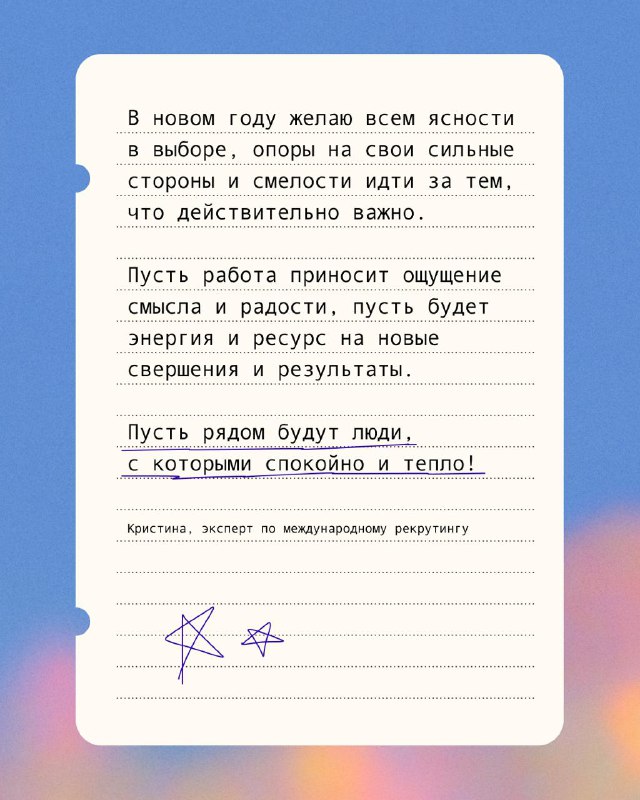 В новом году желаю всем ясности
в выборе, опоры на свои сильные
стороны и смелости идти за тем,
что действительно важно.
Пусть работа приносит ощущение
смысла и радости, пусть будет
энергия и ресурс на новые
свершения и результаты.
Пусть рядом будут люди,
с которыми спокойно и тепло!
Кристина, эксперт по международному рекрутингу